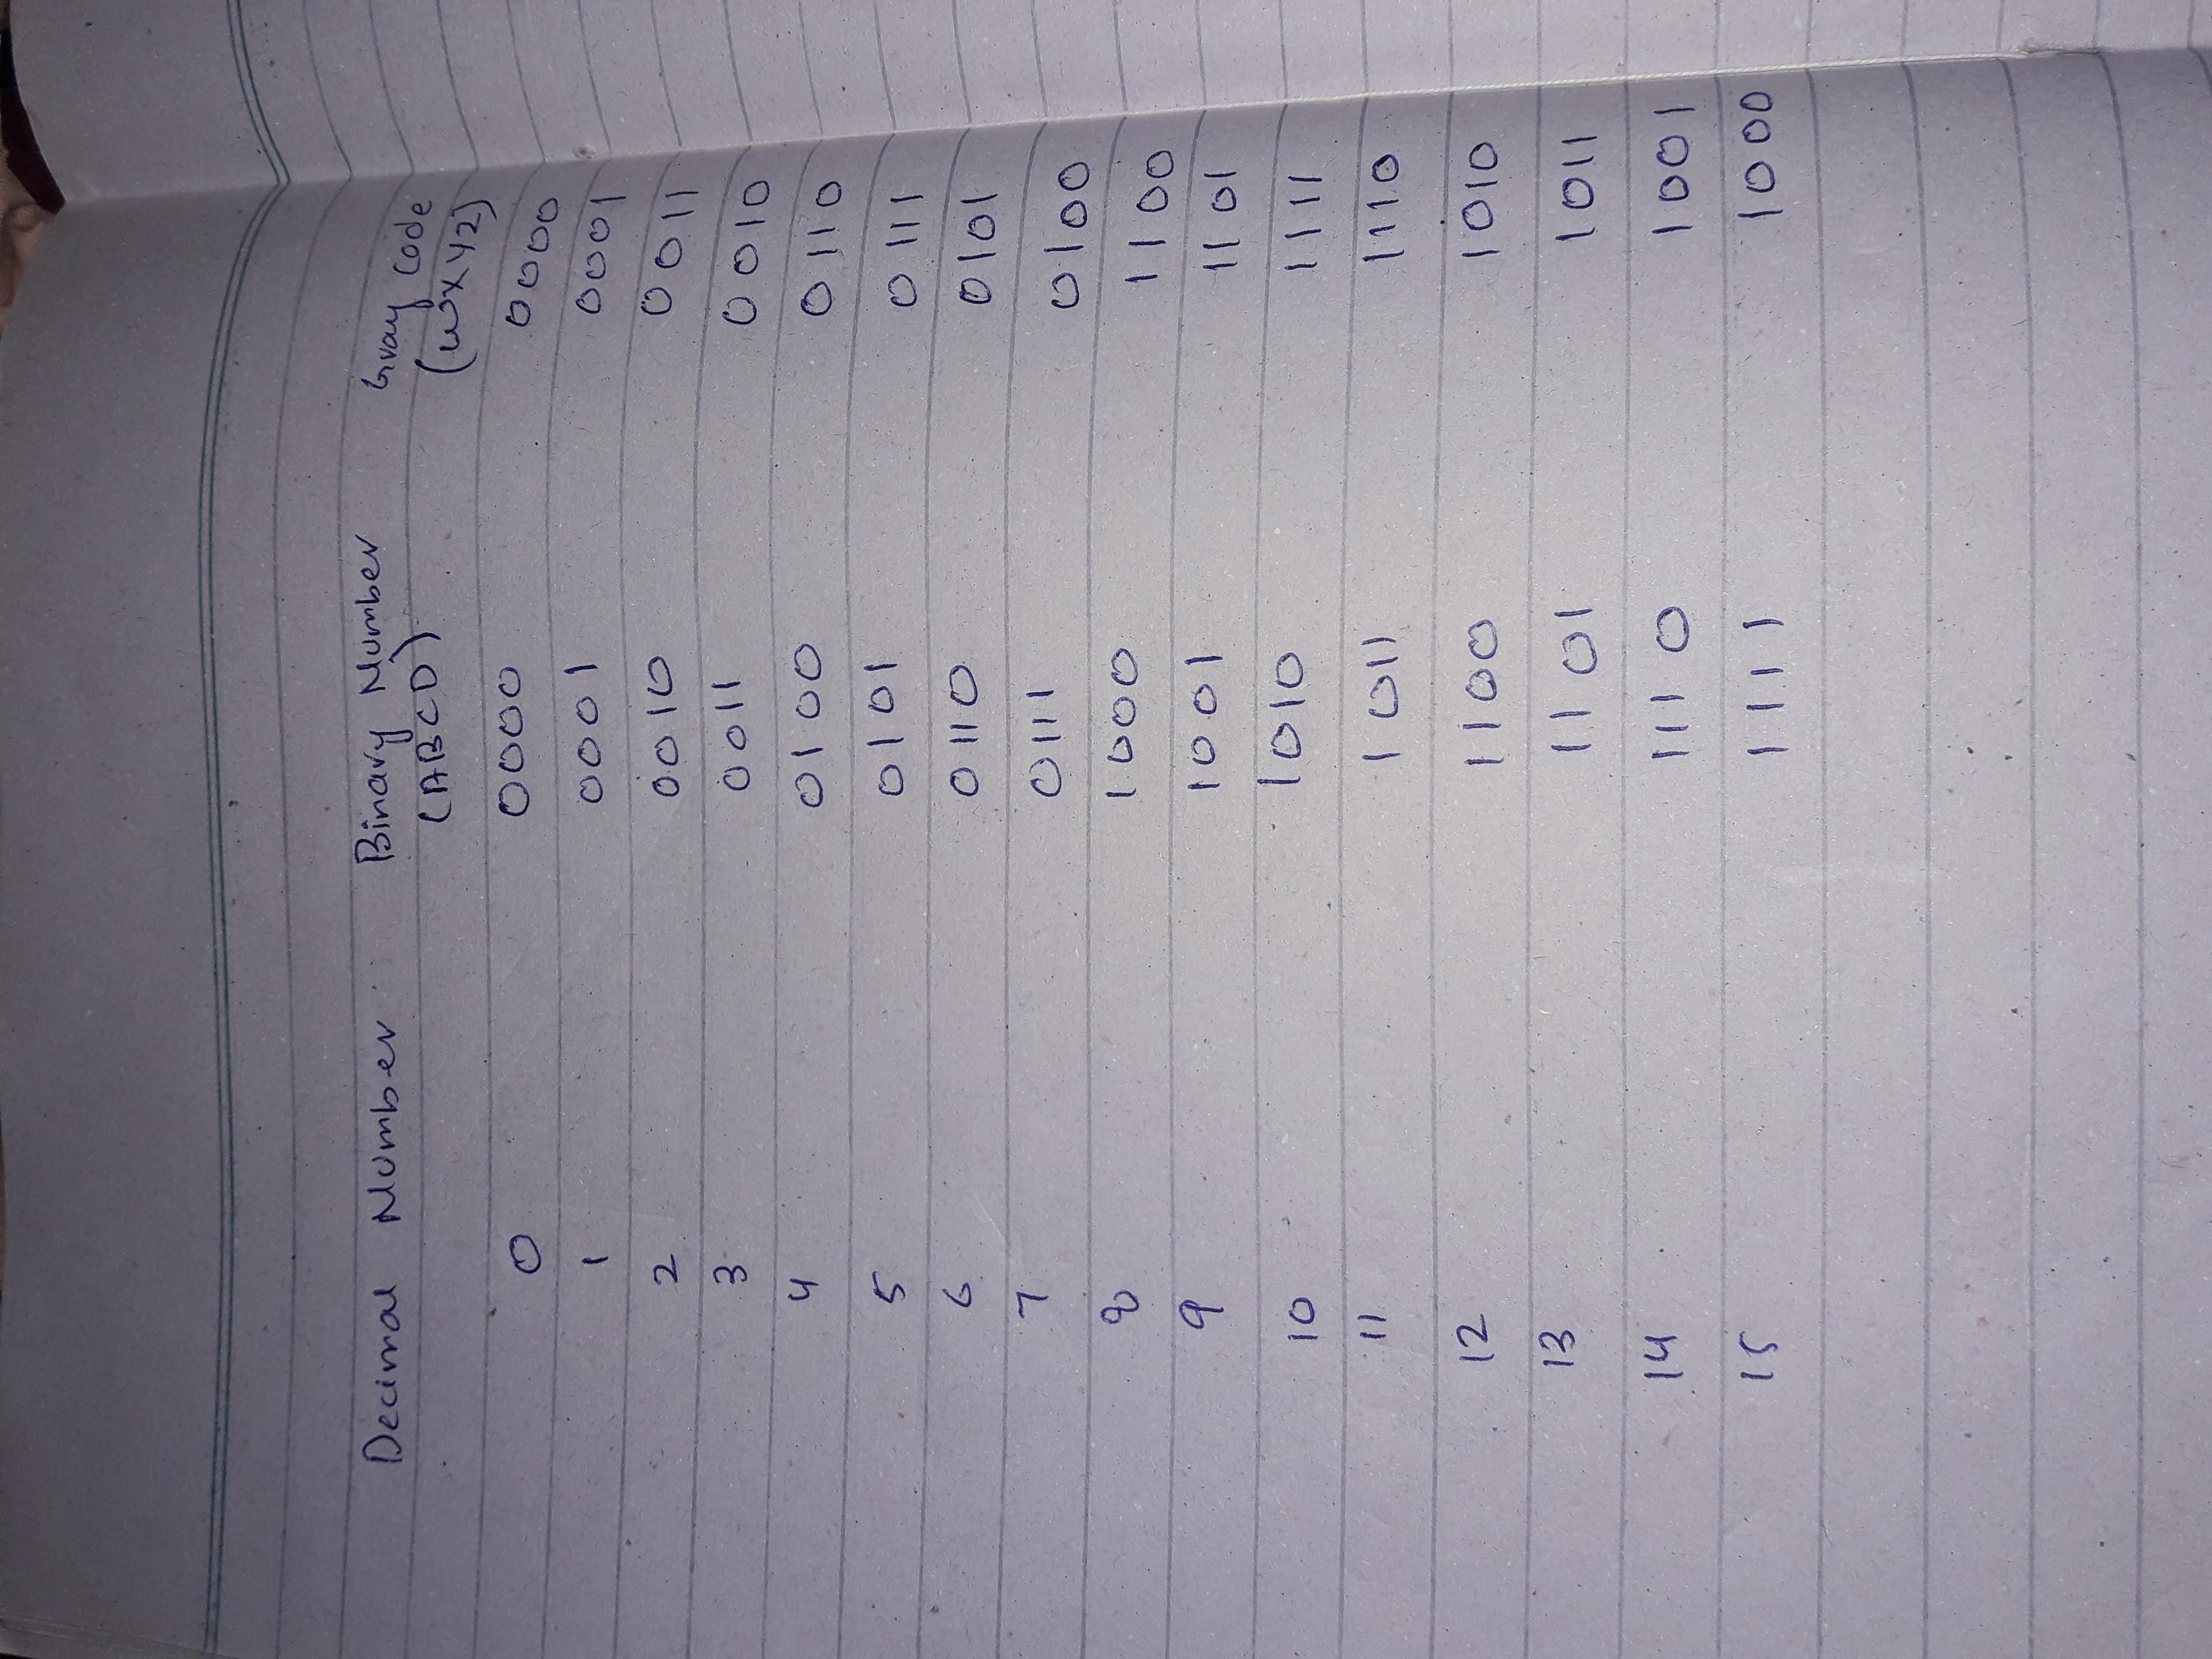 Decimal Number Binary Number Gray Code
(ABCD) (wxyz)
0 0000 0000
1 0001 0001
2 0010 0011
3 0011 0010
4 0100 0110
5 0101 0111
6 0110 0101
7 0111 0100
8 1000 1100
9 1001 1101
10 1010 1111
11 1011 1110
12 1100 1010
13 1101 1011
14 1110 1001
15 1111 1000